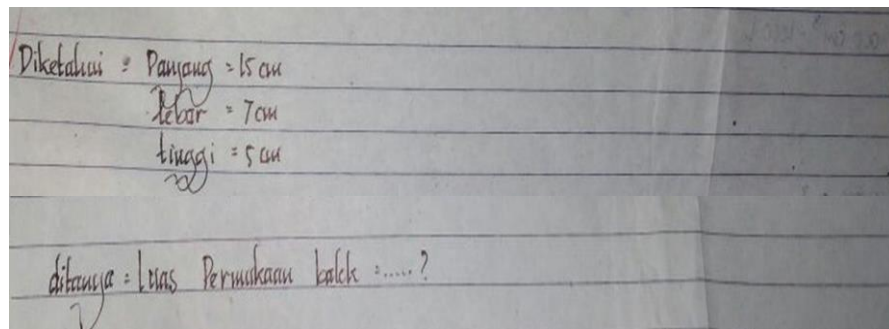 Diketahui = Panjang = 15 cm
lebar = 7 cm
tinggi = 5 cm
ditanya = Luas Permukaan balok = ..... ?